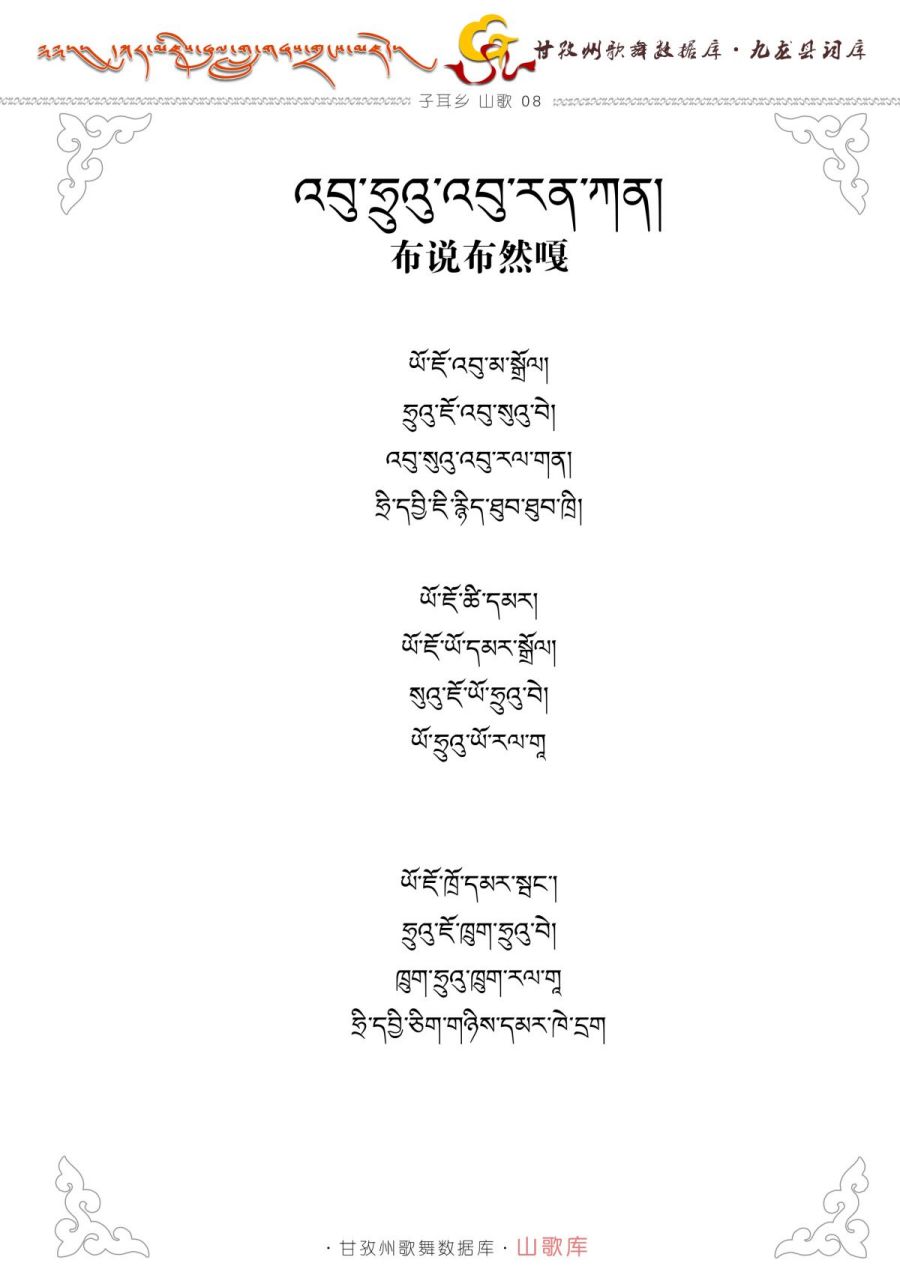 甘孜州歌舞数据库·九龙县词库
子耳乡 山歌 08
འབུ་ཧྲུའུ་འབུ་རན་ཀན།
布说布然嘎
ཡོ་ཇོ་འབུ་མ་སྒྲོལ།
ཧྲུའུ་ཇོ་འབུ་སུའུ་བེ།
འབུ་སུའུ་འབུ་རལ་གན།
ཧྲི་དབྱི་ཇི་རྙིད་ཐུབ་ཐུབ་ཁྲི།
ཡོ་ཇོ་ཚི་དམར།
ཡོ་ཇོ་ཡོ་དམར་སྒྲོལ།
སུའུ་ཇོ་ཡོ་ཧྲུའུ་བེ།
ཡོ་ཧྲུའུ་ཡོ་རལ་གཱ
ཡོ་ཇོ་ཁྲོ་དམར་སྦང་།
ཧྲུའུ་ཇོ་ཁྲུག་ཧྲུའུ་བེ།
ཁྲུག་ཧྲུའུ་ཁྲུག་རལ་གཱ
ཧྲི་དབྱི་ཅིག་གཉིས་དམར་ཁེ་དྲག
·甘孜州歌舞数据库·山歌库